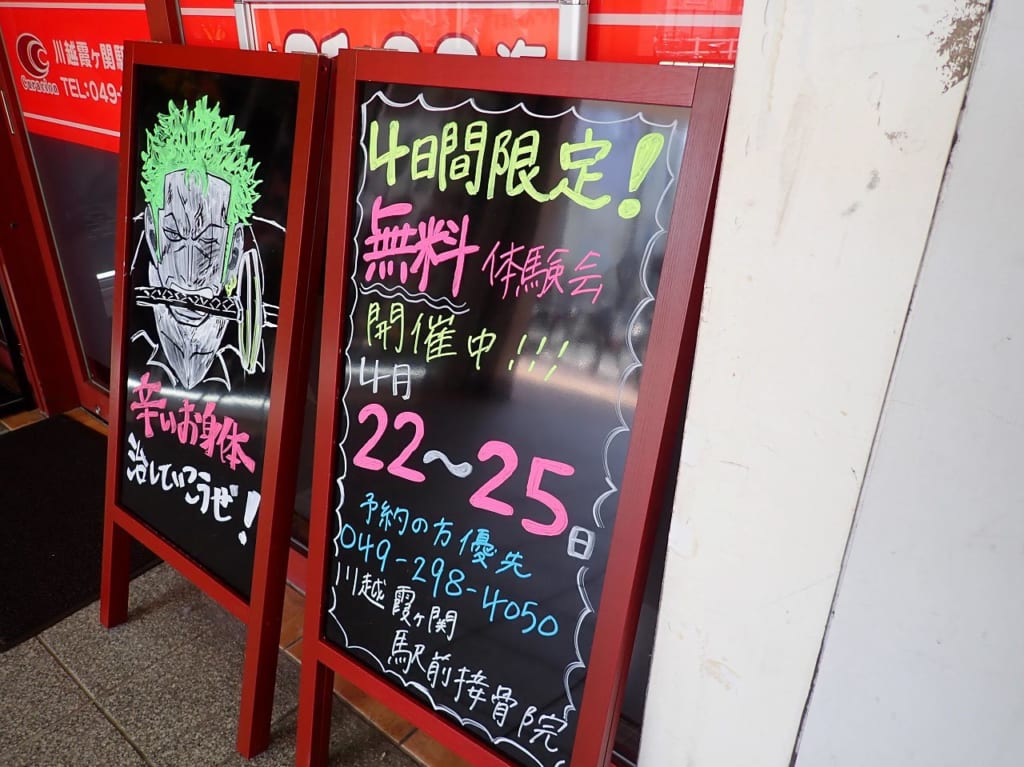 川越霞ヶ関駅
Curacion
TEL:049-
辛いお身体
治していこうぜ!
4日間限定!
無料体験会
開催中!!!
4月
22~25日
予約の方優先
049-298-4050
川越霞ヶ関
駅前接骨院